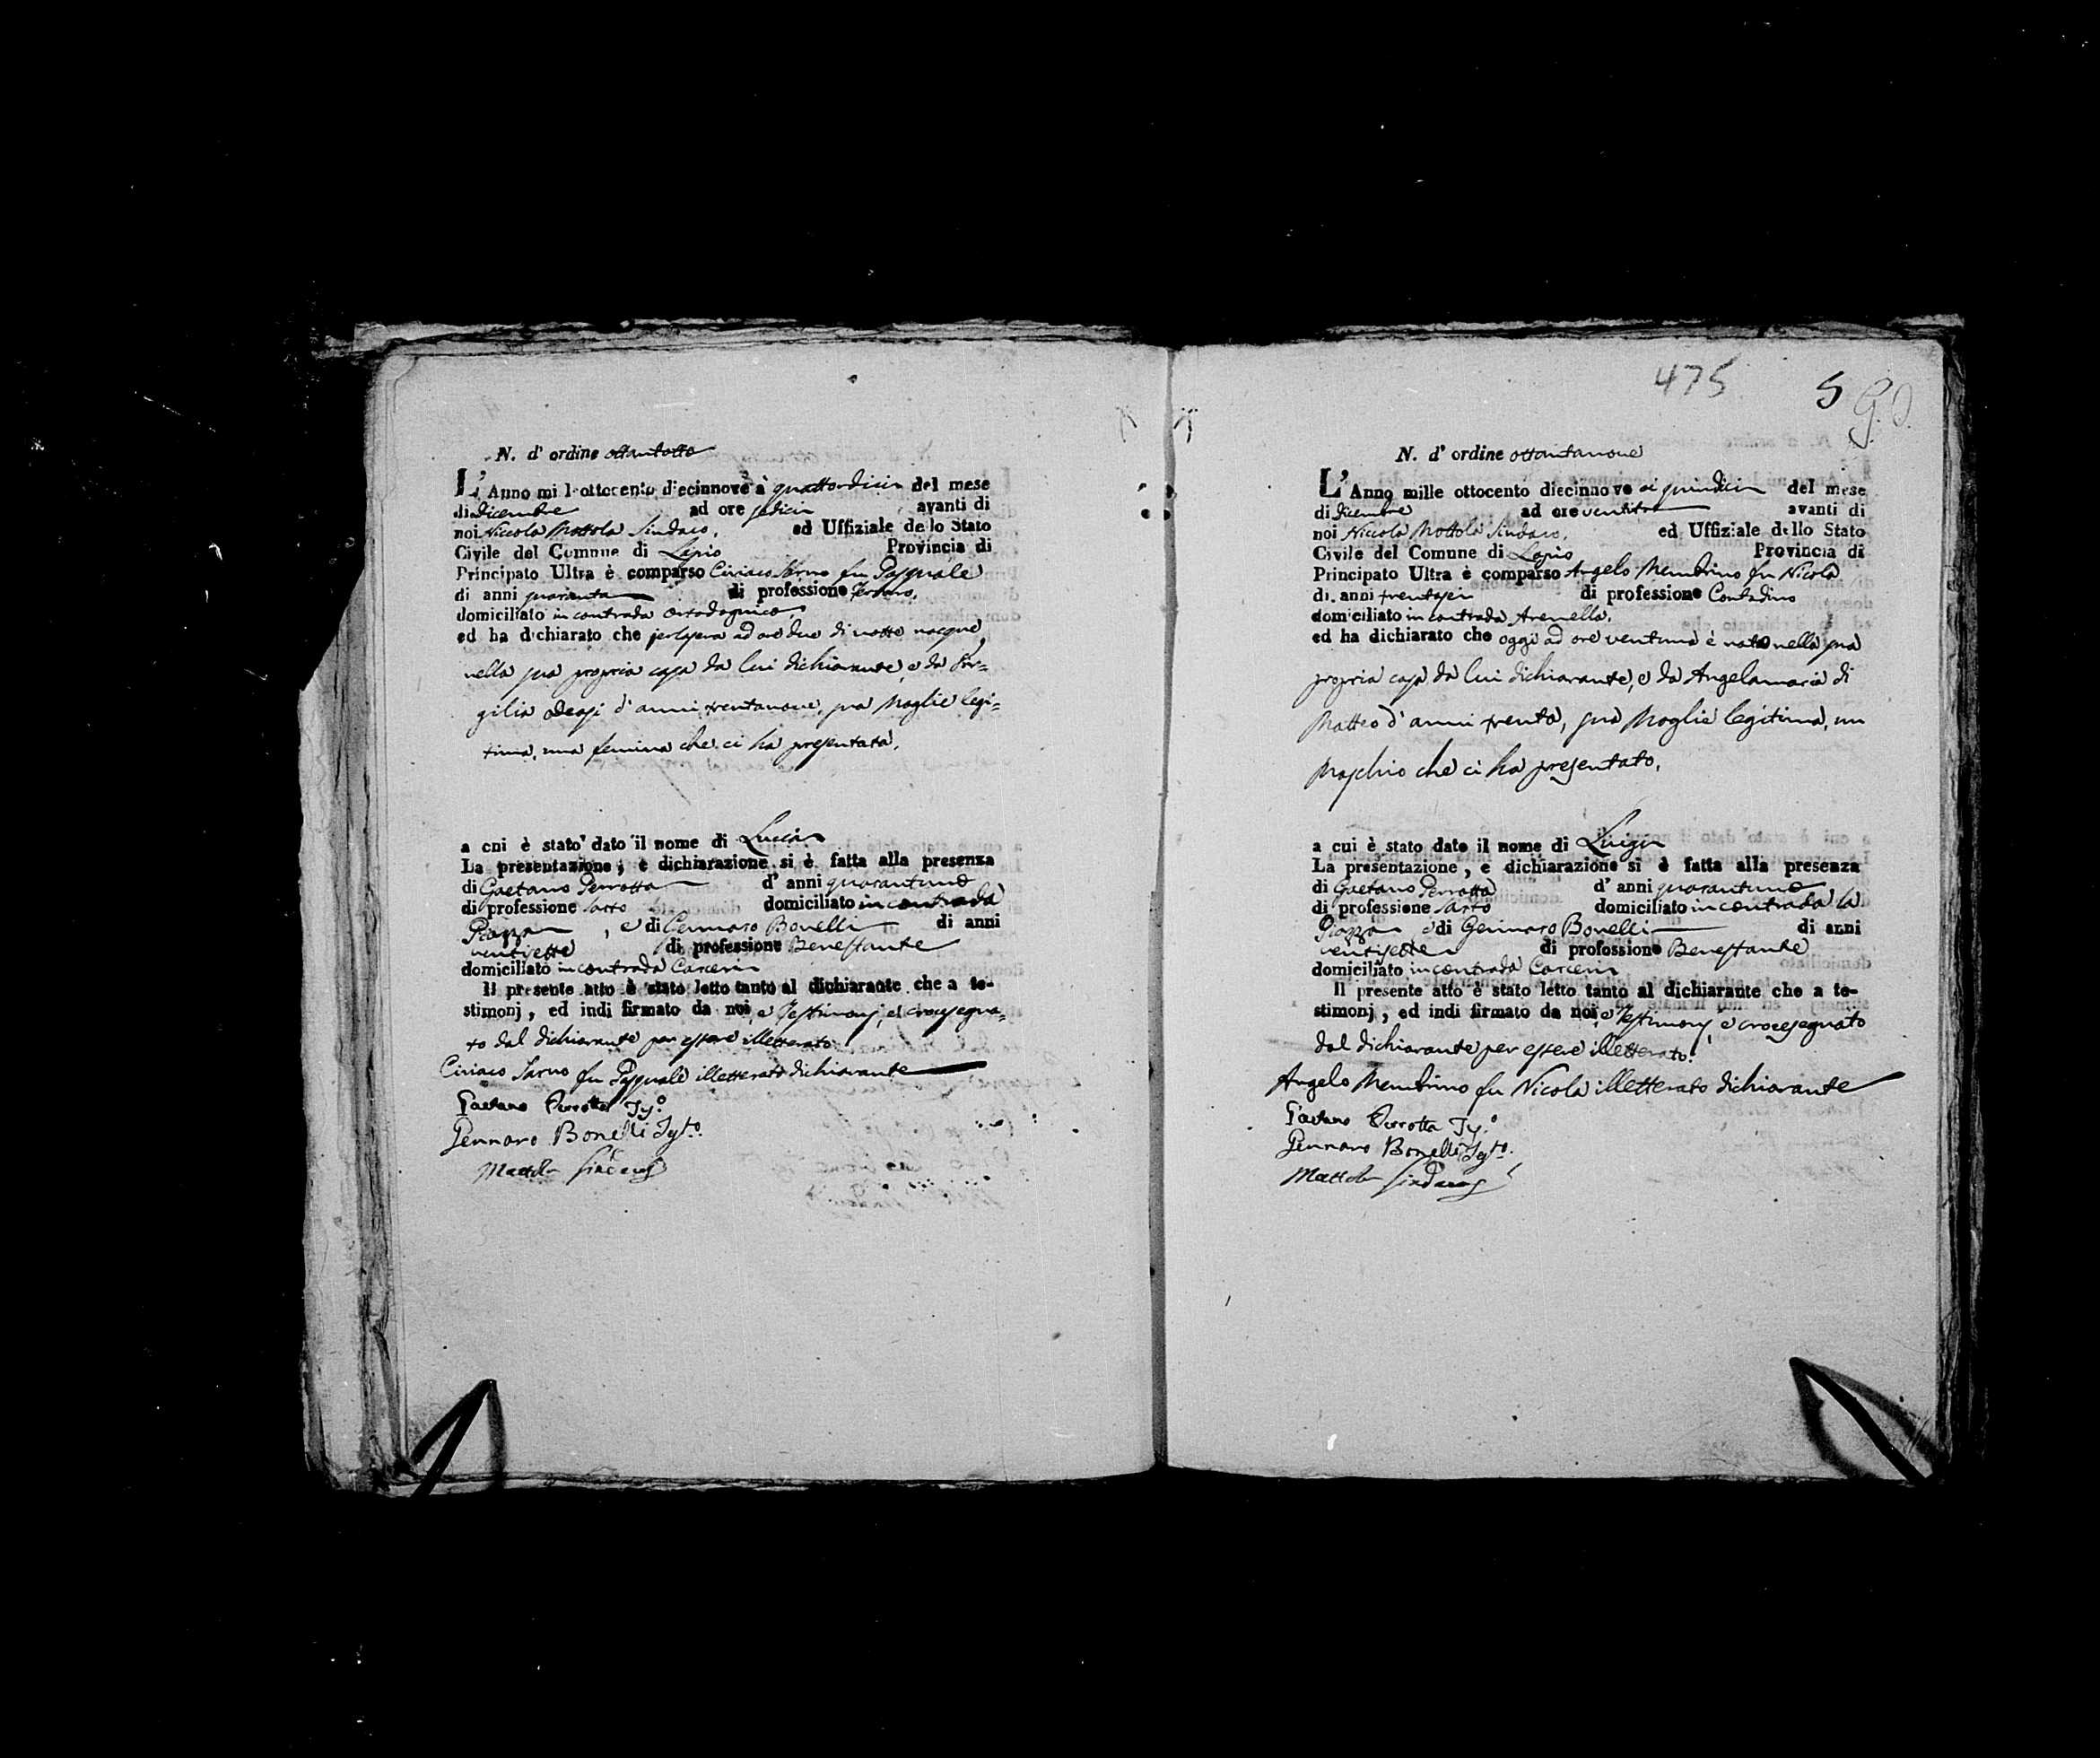 N. d' ordine ottantotto
L' Anno mille ottocento diecinnove a quattordici del mese
di dicembre ad ore sedici avanti di
noi Niccola Mottola Sindaco, ed Uffiziale dello Stato
Civile del Comune di Lapio Provincia di
Principato Ultra è comparso Ciriaco Sarno fu Pasquale
di anni quaranta di professione
domiciliato in contrada
ed ha dichiarato che jerlsera ad ore due di notte nacque
nella sua propria casa da lui dichiarante, e da Vir=
gilia d'anni trentanove, sua Moglie legi=
tima, una femina che ci ha presentata,
a cui è stato dato il nome di Lucia
La presentazione, e dichiarazione si è fatta alla presenza
di Gaetano Perrotta d' anni quarantuno
di professione Sarto domiciliato in contrada
Piazza, e di Gennaro Bonelli di anni
ventisette di professione Benestante
domiciliato in contrada Carceri
Il presente atto è stato letto tanto al dichiarante che a te-
stimonj, ed indi firmato da noi, e Testimonj, e crocesegna=
to dal dichiarante per essere illetterato.
Ciriaco Sarno fu Pasquale illetterato dichiarante
Gaetano Perrotta
Gennaro Bonelli
Mottola Sindaco
475
5
N. d' ordine ottantanove
L' Anno mille ottocento diecinnove ai quindici del mese
di dicembre ad ore ventitre avanti di
noi Niccola Mottola Sindaco, ed Uffiziale dello Stato
Civile del Comune di Lapio Provincia di
Principato Ultra è comparso Angelo Membrino fu Nicola
di anni trentasei di professione Contadino
domiciliato in contrada Arenella,
ed ha dichiarato che oggi ad ore ventuna è nato nella sua
propria casa da lui dichiarante, e da Angelamaria di
Matteo d'anni trenta, sua Moglie legitima, un
Maschio che ci ha presentato,
a cui è stato dato il nome di Luigi
La presentazione, e dichiarazione si è fatta alla presenza
di Gaetano Perrotta d' anni quarantuno
di professione Sarto domiciliato in contrada la
Piazza e di Gennaro Bonelli di anni
ventisette di professione Benestante
domiciliato in contrada Carceri
Il presente atto è stato letto tanto al dichiarante che a te-
stimonj, ed indi firmato da noi, e Testimonj, e crocesegnato
dal dichiarante per essere illetterato.
Angelo Membrino fu Nicola illetterato dichiarante
Gaetano Perrotta
Gennaro Bonelli
Mottola Sindaco